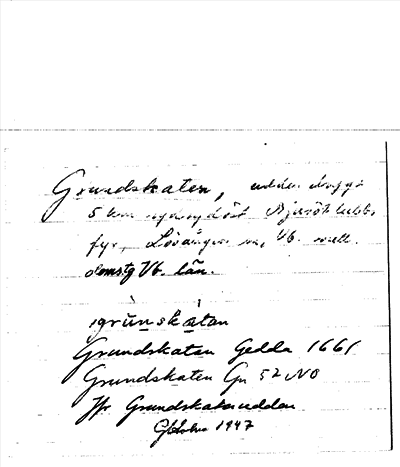 Grundskaten, udden längst
5 km sydsydöst Bjuröklubb,
fyr, Lövångers sn, Vb. mell.
domsg Vb. län.
grùnskátan
Grundskatan Gedda 1661
Grundskaten Gn 52 NO
Jfr Grundskateudden
1947